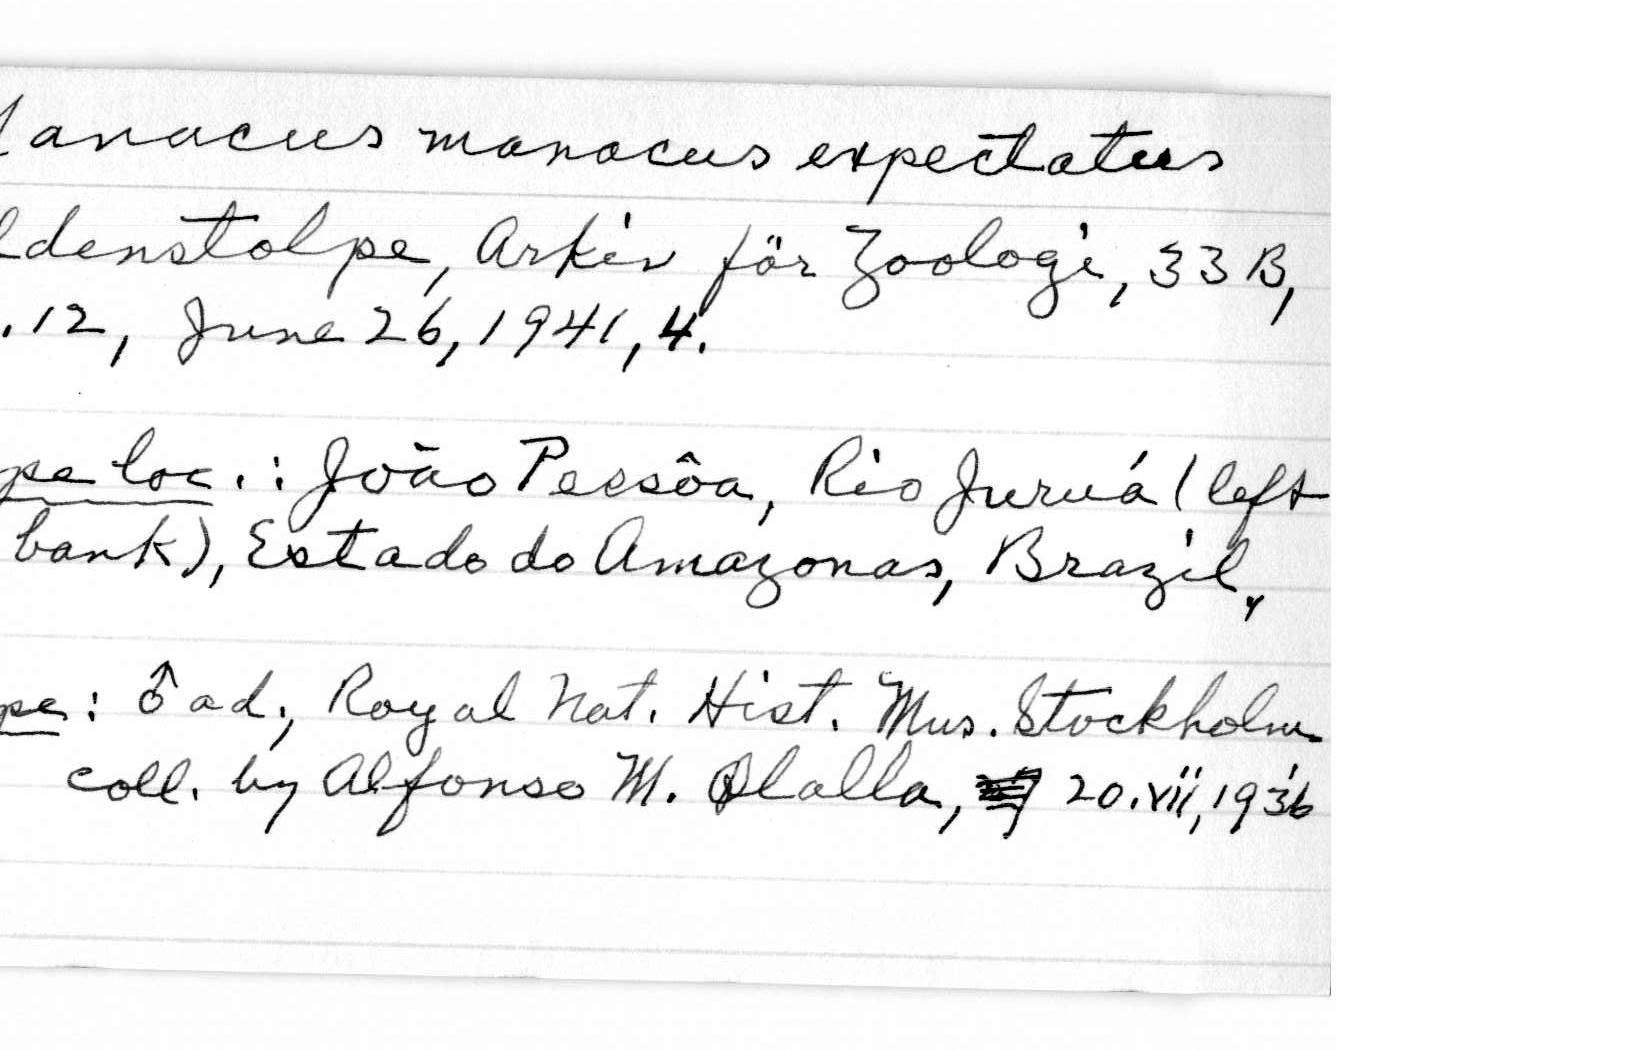 Manacus manacus expectatus
ldenstolpe, Arkiv för Zoologi, 33 B,
. 12, June 26, 1941, 4.
pe loc.: João Pessôa, Rio Juruá (left
bank), Estado do Amazonas, Brazil,
pe: ♂ ad., Royal Nat. Hist. Mus. Stockholm
coll. by Alfonso M. Olalla, 20.vii, 1936